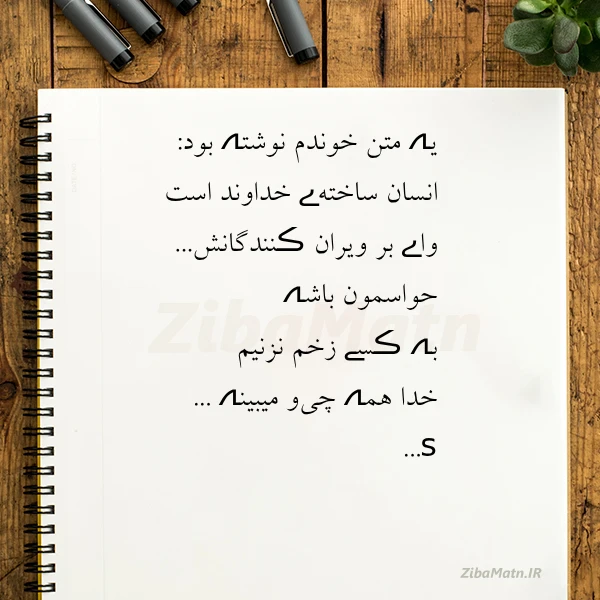 یہ متن خوندم نوشتہ بود:
انسان ساختہ‌ے خداوند است
واے بر ویران ڪنندگانش...
حواسمون باشہ
بہ ڪسے زخم نزنیم
خدا همہ چی‌و میبینہ ...
s...
ZibaMatn
ZibaMatn.IR